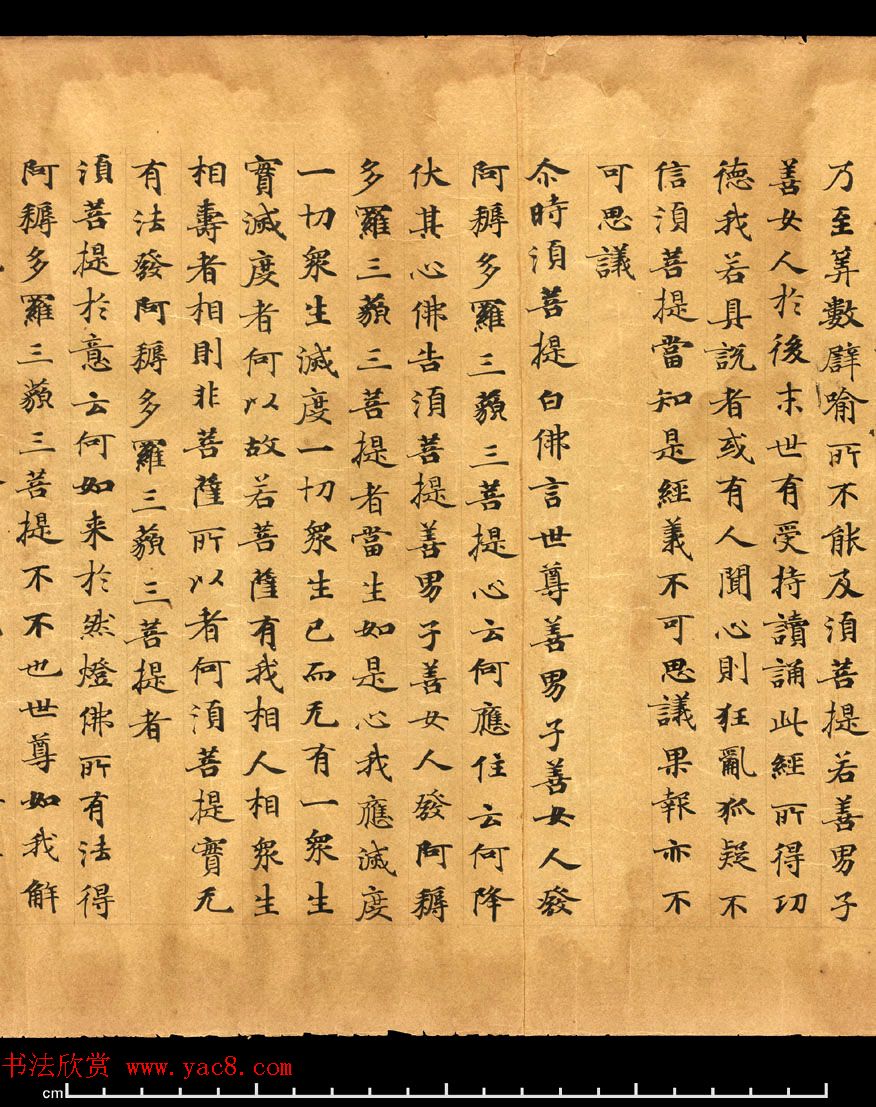 乃至筭數譬喻所不能及湏菩提若善男子
善女人於後末世有受持讀誦此經所得功
德我若具說者或有人聞心則狂亂狐疑不
信湏菩提當知是經義不可思議果報亦不
可思議
尒時湏菩提白佛言世尊善男子善女人發
阿耨多羅三藐三菩提心云何應住云何降
伏其心佛告湏菩提善男子善女人發阿耨
多羅三藐三菩提者當生如是心我應滅度
一切衆生滅度一切衆生已而无有一衆生
實滅度者何以故若菩薩有我相人相衆生
相壽者相則非菩薩所以者何湏菩提實无
有法發阿耨多羅三藐三菩提者
湏菩提於意云何如来於然燈佛所有法得
阿耨多羅三藐三菩提不不也世尊如我解
书法欣赏 www.yac8.com
cm